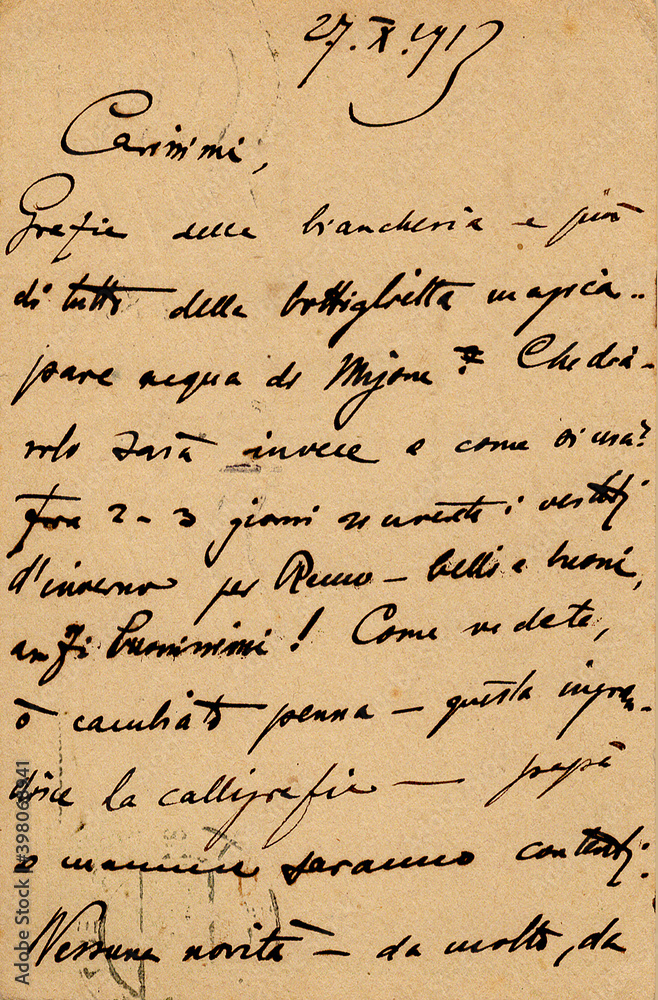 27. X. 917
Carissimi,
Grazie della biancheria e più
di tutto della bottiglietta magica..
pare acqua di Mijone? Che dia-
volo sarà invece e come si usa?
Fra 2-3 giorni avrete i vestiti
d'inverno per Remo - belli e buoni,
anzi buonissimi! Come vedete,
ò cambiato penna - questa ingran-
disce la calligrafia - papà
e mamma saranno contenti.
Nessuna novità - da molto, da
Adobe Stock | #398068941